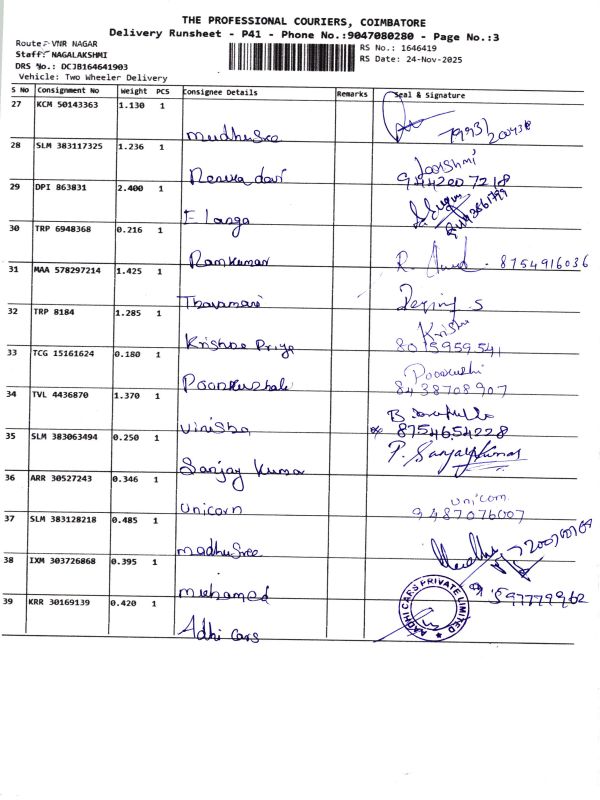 THE PROFESSIONAL COURIERS, COIMBATORE
Delivery Runsheet - P41 - Phone No.:9047080280 - Page No.:3
Route: VNR NAGAR
Staff: NAGALAKSHMI
DRS No.: DCJB164641903
Vehicle: Two Wheeler Delivery
RS No.: 1646419
RS Date: 24-Nov-2025
S No Consignment No Weight PCS Consignee Details Remarks Seal & Signature
27 KCM 50143363 1.130 1
MadhuSree
28 SLM 383117325 1.236 1
Renuka davi
9442007218
29 DPI 863831 2.400 1
Elanga
30 TRP 6948368 0.216 1
Ramkumar R. 8754916036
31 MAA 578297214 1.425 1
Tharamani
32 TRP 8184 1.285 1
Krishna Priya Krishn
8015959541
33 TCG 15161624 0.180 1
Poonkuzhali Poonkuzhi
8438708907
34 TVL 4436870 1.370 1
Vinisha 8754654228
35 SLM 383063494 0.250 1
Sanjay Kumar P. Sanjaykumar
36 ARR 30527243 0.346 1
Unicorn Unicorn
9487076007
37 SLM 383128218 0.485 1
MadhuSree
38 IXM 303726868 0.395 1
Mushamed
39 KRR 30169139 0.420 1
Adhi Cars AADHI CARS PRIVATE LIMITED